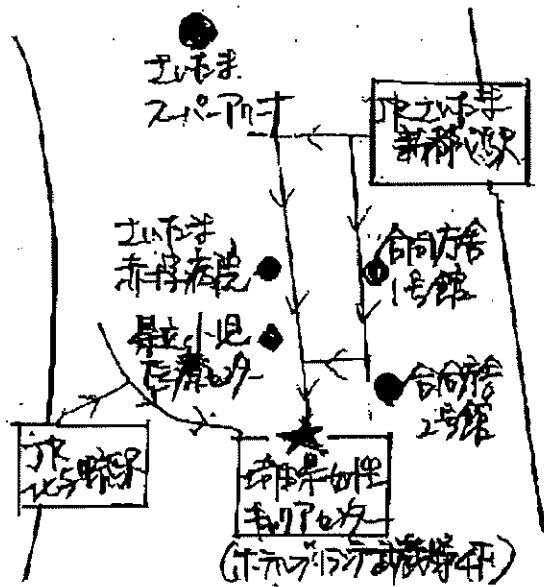 さいたま
スーパーアリーナ
JRさいたま
新都心駅
さいたま
赤十字病院
合同庁舎
1号館
県立小児
医療センター
合同庁舎
2号館
JR
北与野駅
埼玉県女性
キャリアセンター
(ホテルブリランテ武蔵野4F)